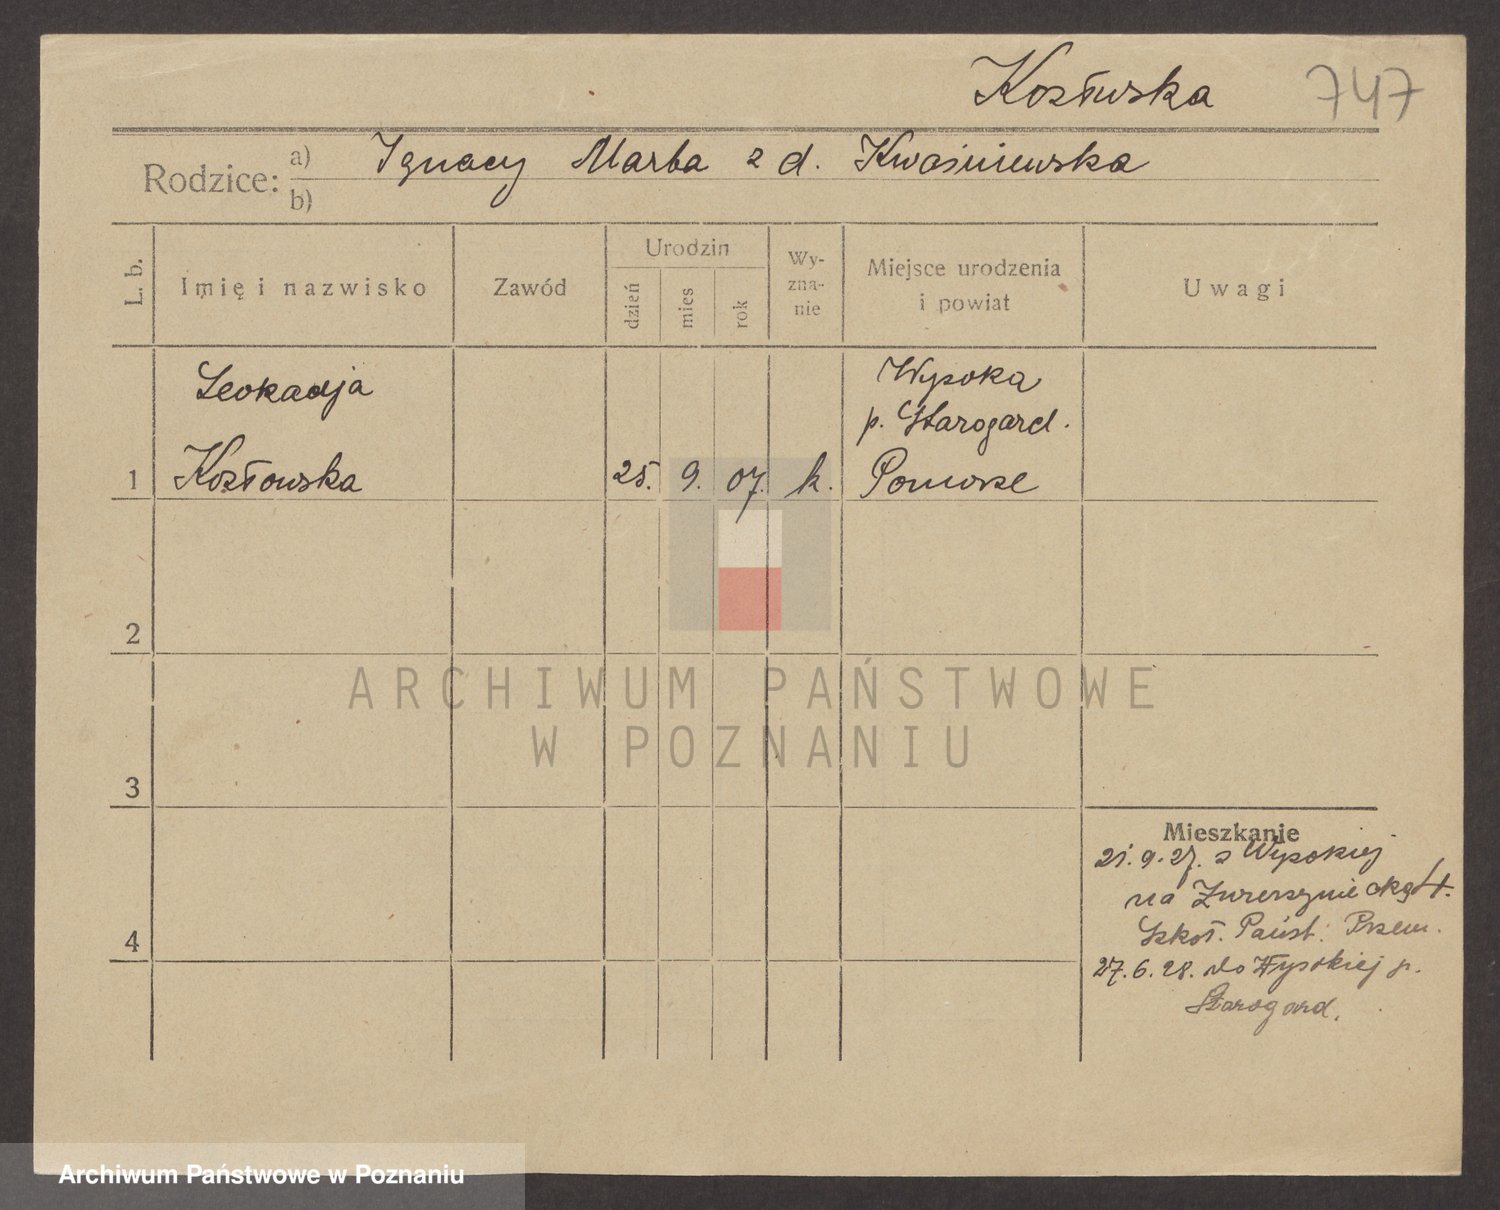 Kozłowska 747
Rodzice: a) Ignacy Marta z d. Kwaśniewska
b)
L. b. Imię i nazwisko Zawód Urodzin dzień mies rok Wy-
zna-
nie Miejsce urodzenia
i powiat Uwagi
Leokadja
Kozłowska
1 25. 9. 07. k. Wysoka
p. Starogard.
Pomorze
2
3
4
Mieszkanie
21.9.27. z Wysokiej
na
Szkoł. Państ. Przem.
27.6.28. do Wysokiej p.
Starogard.
ARCHIWUM PAŃSTWOWE
W POZNANIU
Archiwum Państwowe w Poznaniu